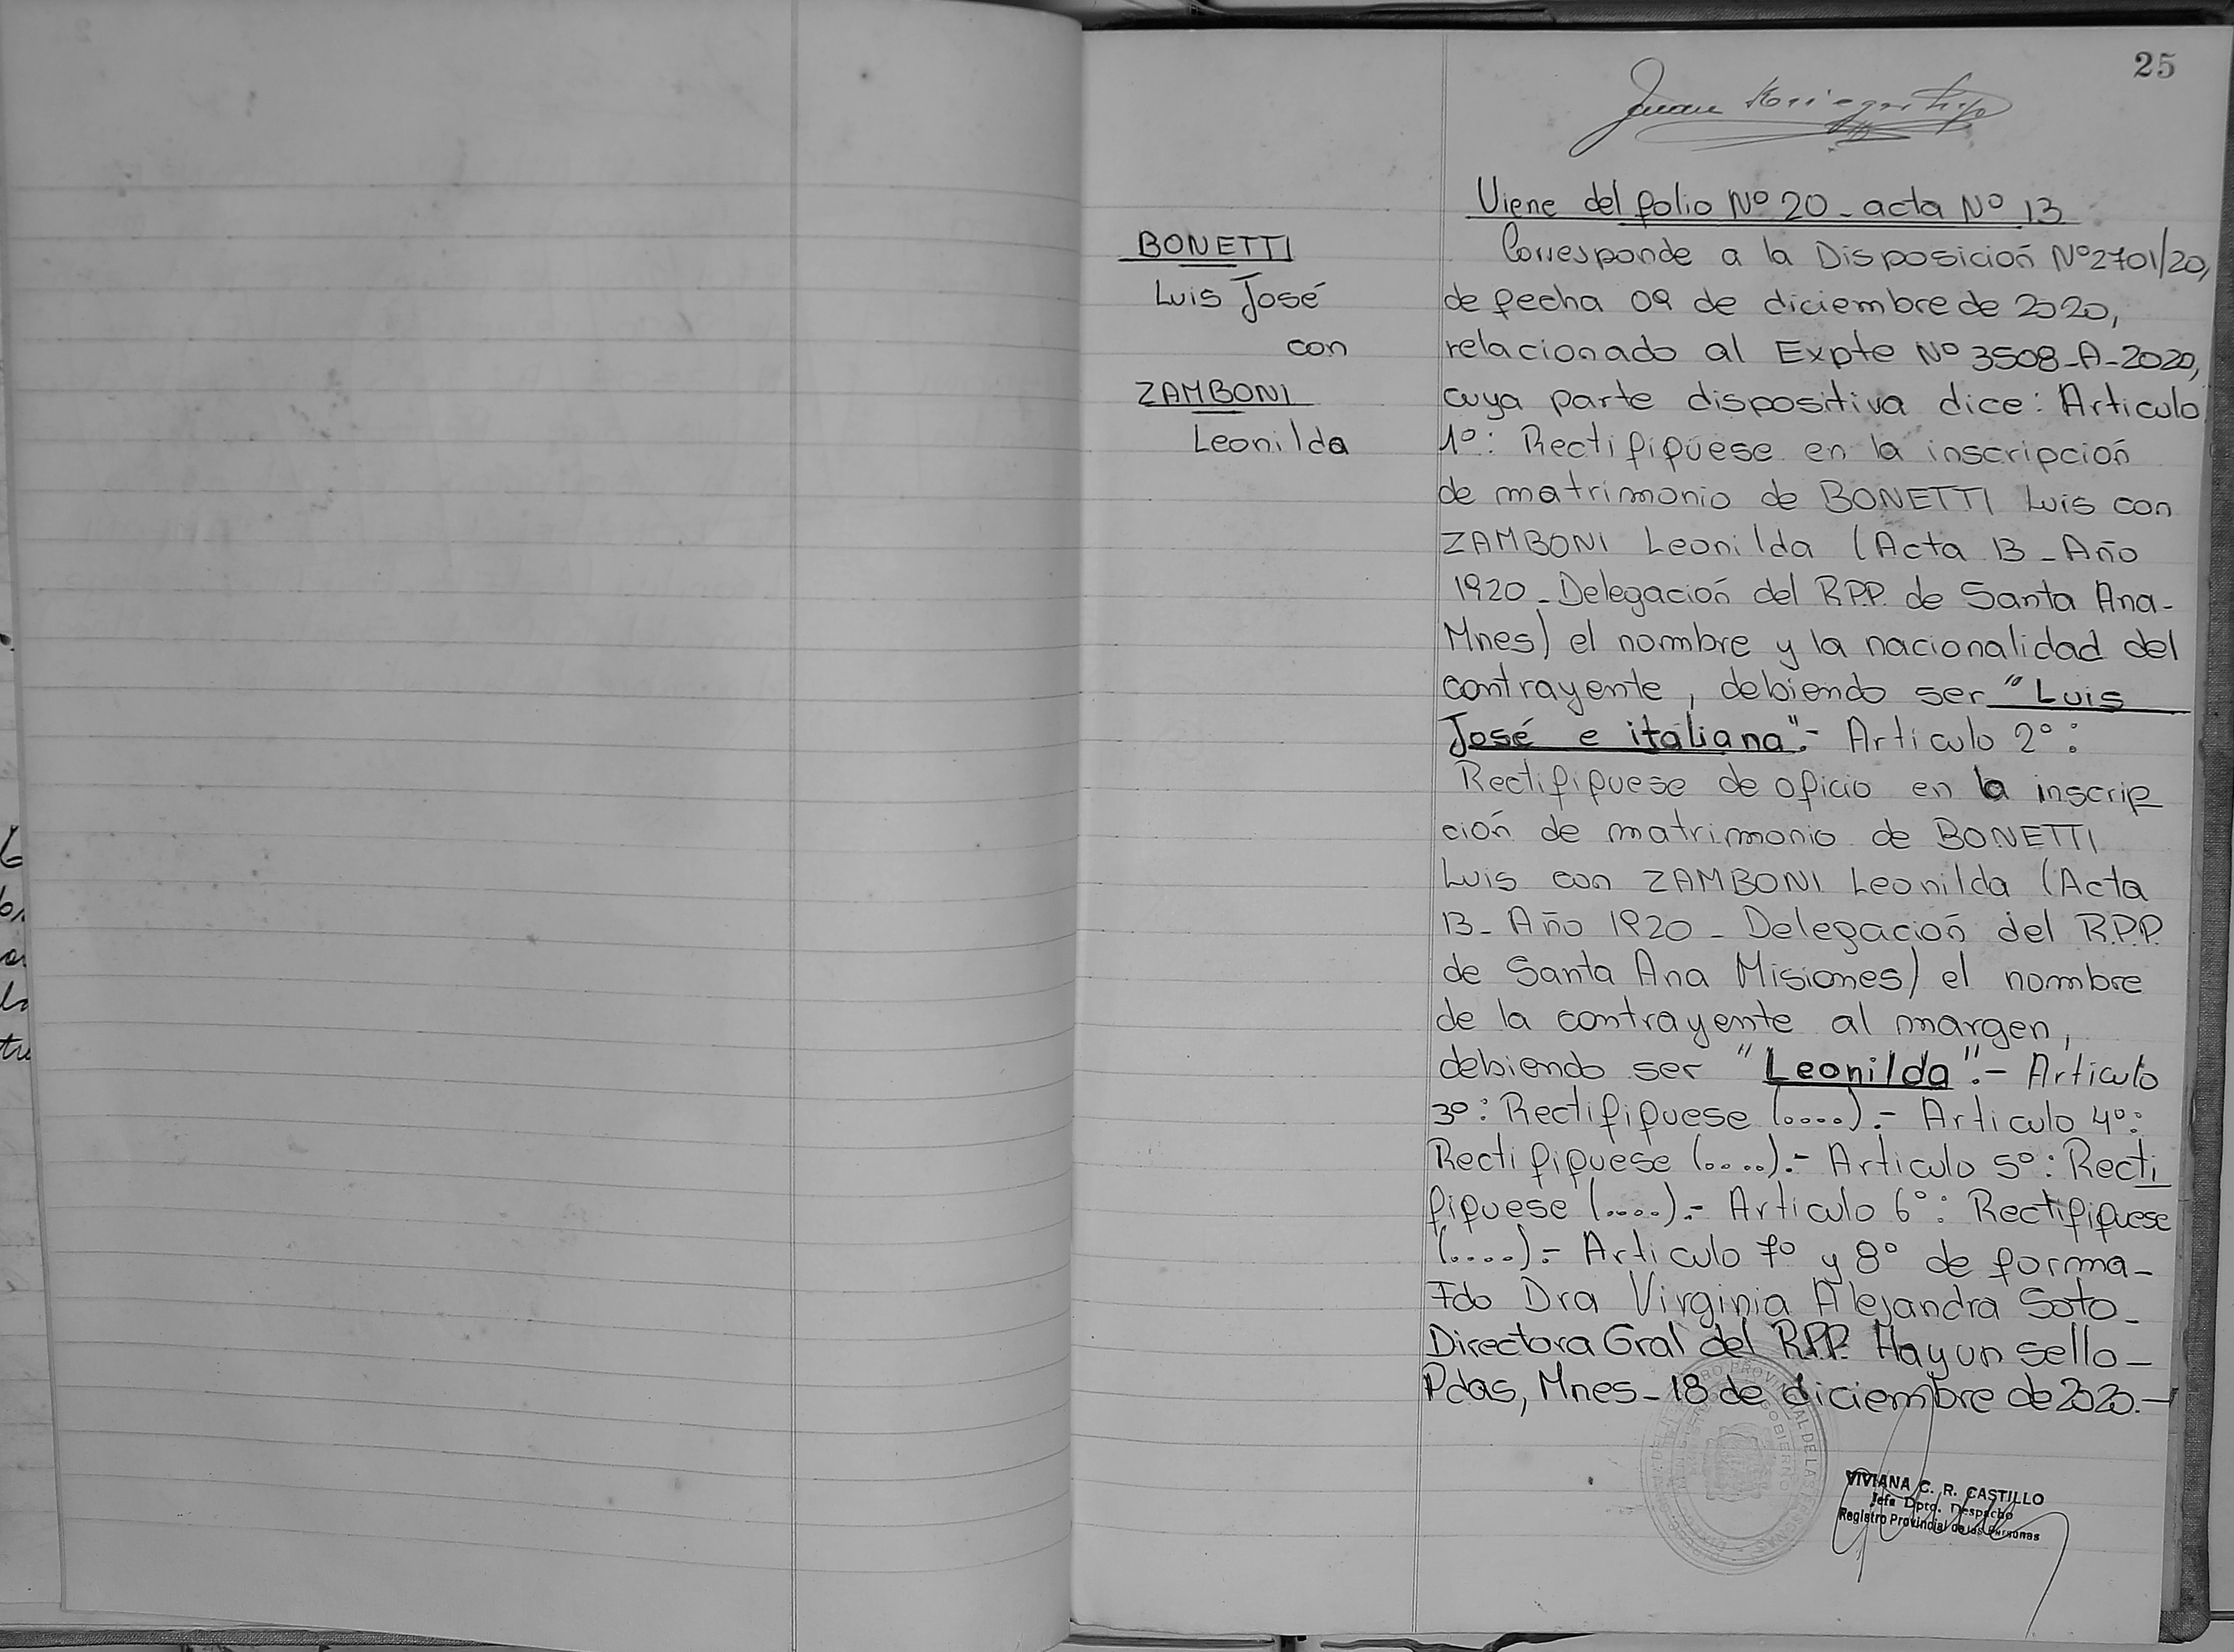 25
Juan
Viene del folio Nº 20 - acta Nº 13
BONETTI
Luis José
con
ZAMBONI
Leonilda
Corresponde a la Disposición Nº 2701/20,
de fecha 09 de diciembre de 2020,
relacionado al Expte Nº 3508-A-2020,
cuya parte dispositiva dice: Articulo
1º: Rectifíquese en la inscripción
de matrimonio de BONETTI Luis con
ZAMBONI Leonilda (Acta 13 - Año
1920 - Delegación del R.P.P. de Santa Ana-
Mnes) el nombre y la nacionalidad del
contrayente, debiendo ser "Luis
José e italiana".- Articulo 2º:
Rectifiquese de oficio en la inscrip
ción de matrimonio de BONETTI
Luis con ZAMBONI Leonilda (Acta
13 - Año 1920 - Delegación del R.P.P.
de Santa Ana Misiones) el nombre
de la contrayente al margen,
debiendo ser "Leonilda".- Articulo
3º: Rectifiquese (....).- Articulo 4º:
Rectifiquese (....).- Articulo 5º: Recti
fiquese (....).- Articulo 6º: Rectifiquese
(....).- Articulo 7º y 8º de forma-
Fdo Dra Virginia Alejandra Soto-
Directora Gral del R.P.P. Hay un sello-
Pdas, Mnes - 18 de diciembre de 2020.-
VIVIANA C. R. CASTILLO
Jefa Dpto. Despacho
Registro Provincial de las Personas